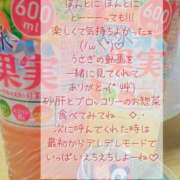 ほんとに ほんとに
とーーーっても!!!
楽しくて気持ちよかった♡
うさぎの動画を
一緒に見てくれて
ありがと
砂肝とブロッコリーのお惣菜
食べてみてね
次に呼んでくれた時は
最初からデレデレモードで
いっぱいえちえちしよーね♡
600
ml
果実
600